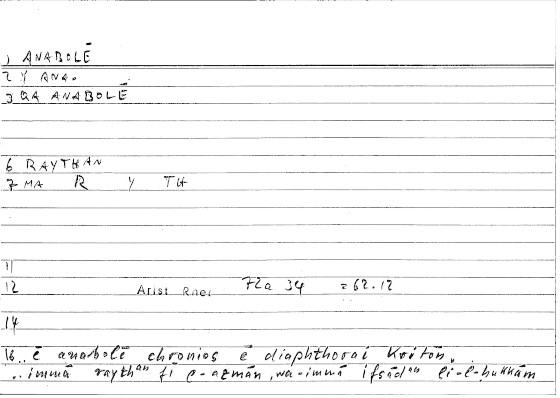 1 ANABOLĒ
2 Y ANA.
3 QA ANABOLĒ
6 RAYTHAN
7 MA R Y TH
11
12 Arist Rhet 72a 34 = 62.12
14
16 .. ē anabolē chronios ē diaphthorai kritōn.
.. immā raythᵃⁿ fī l-azmān, wa-immā ifsādᵃⁿ li-l-ḥukkām